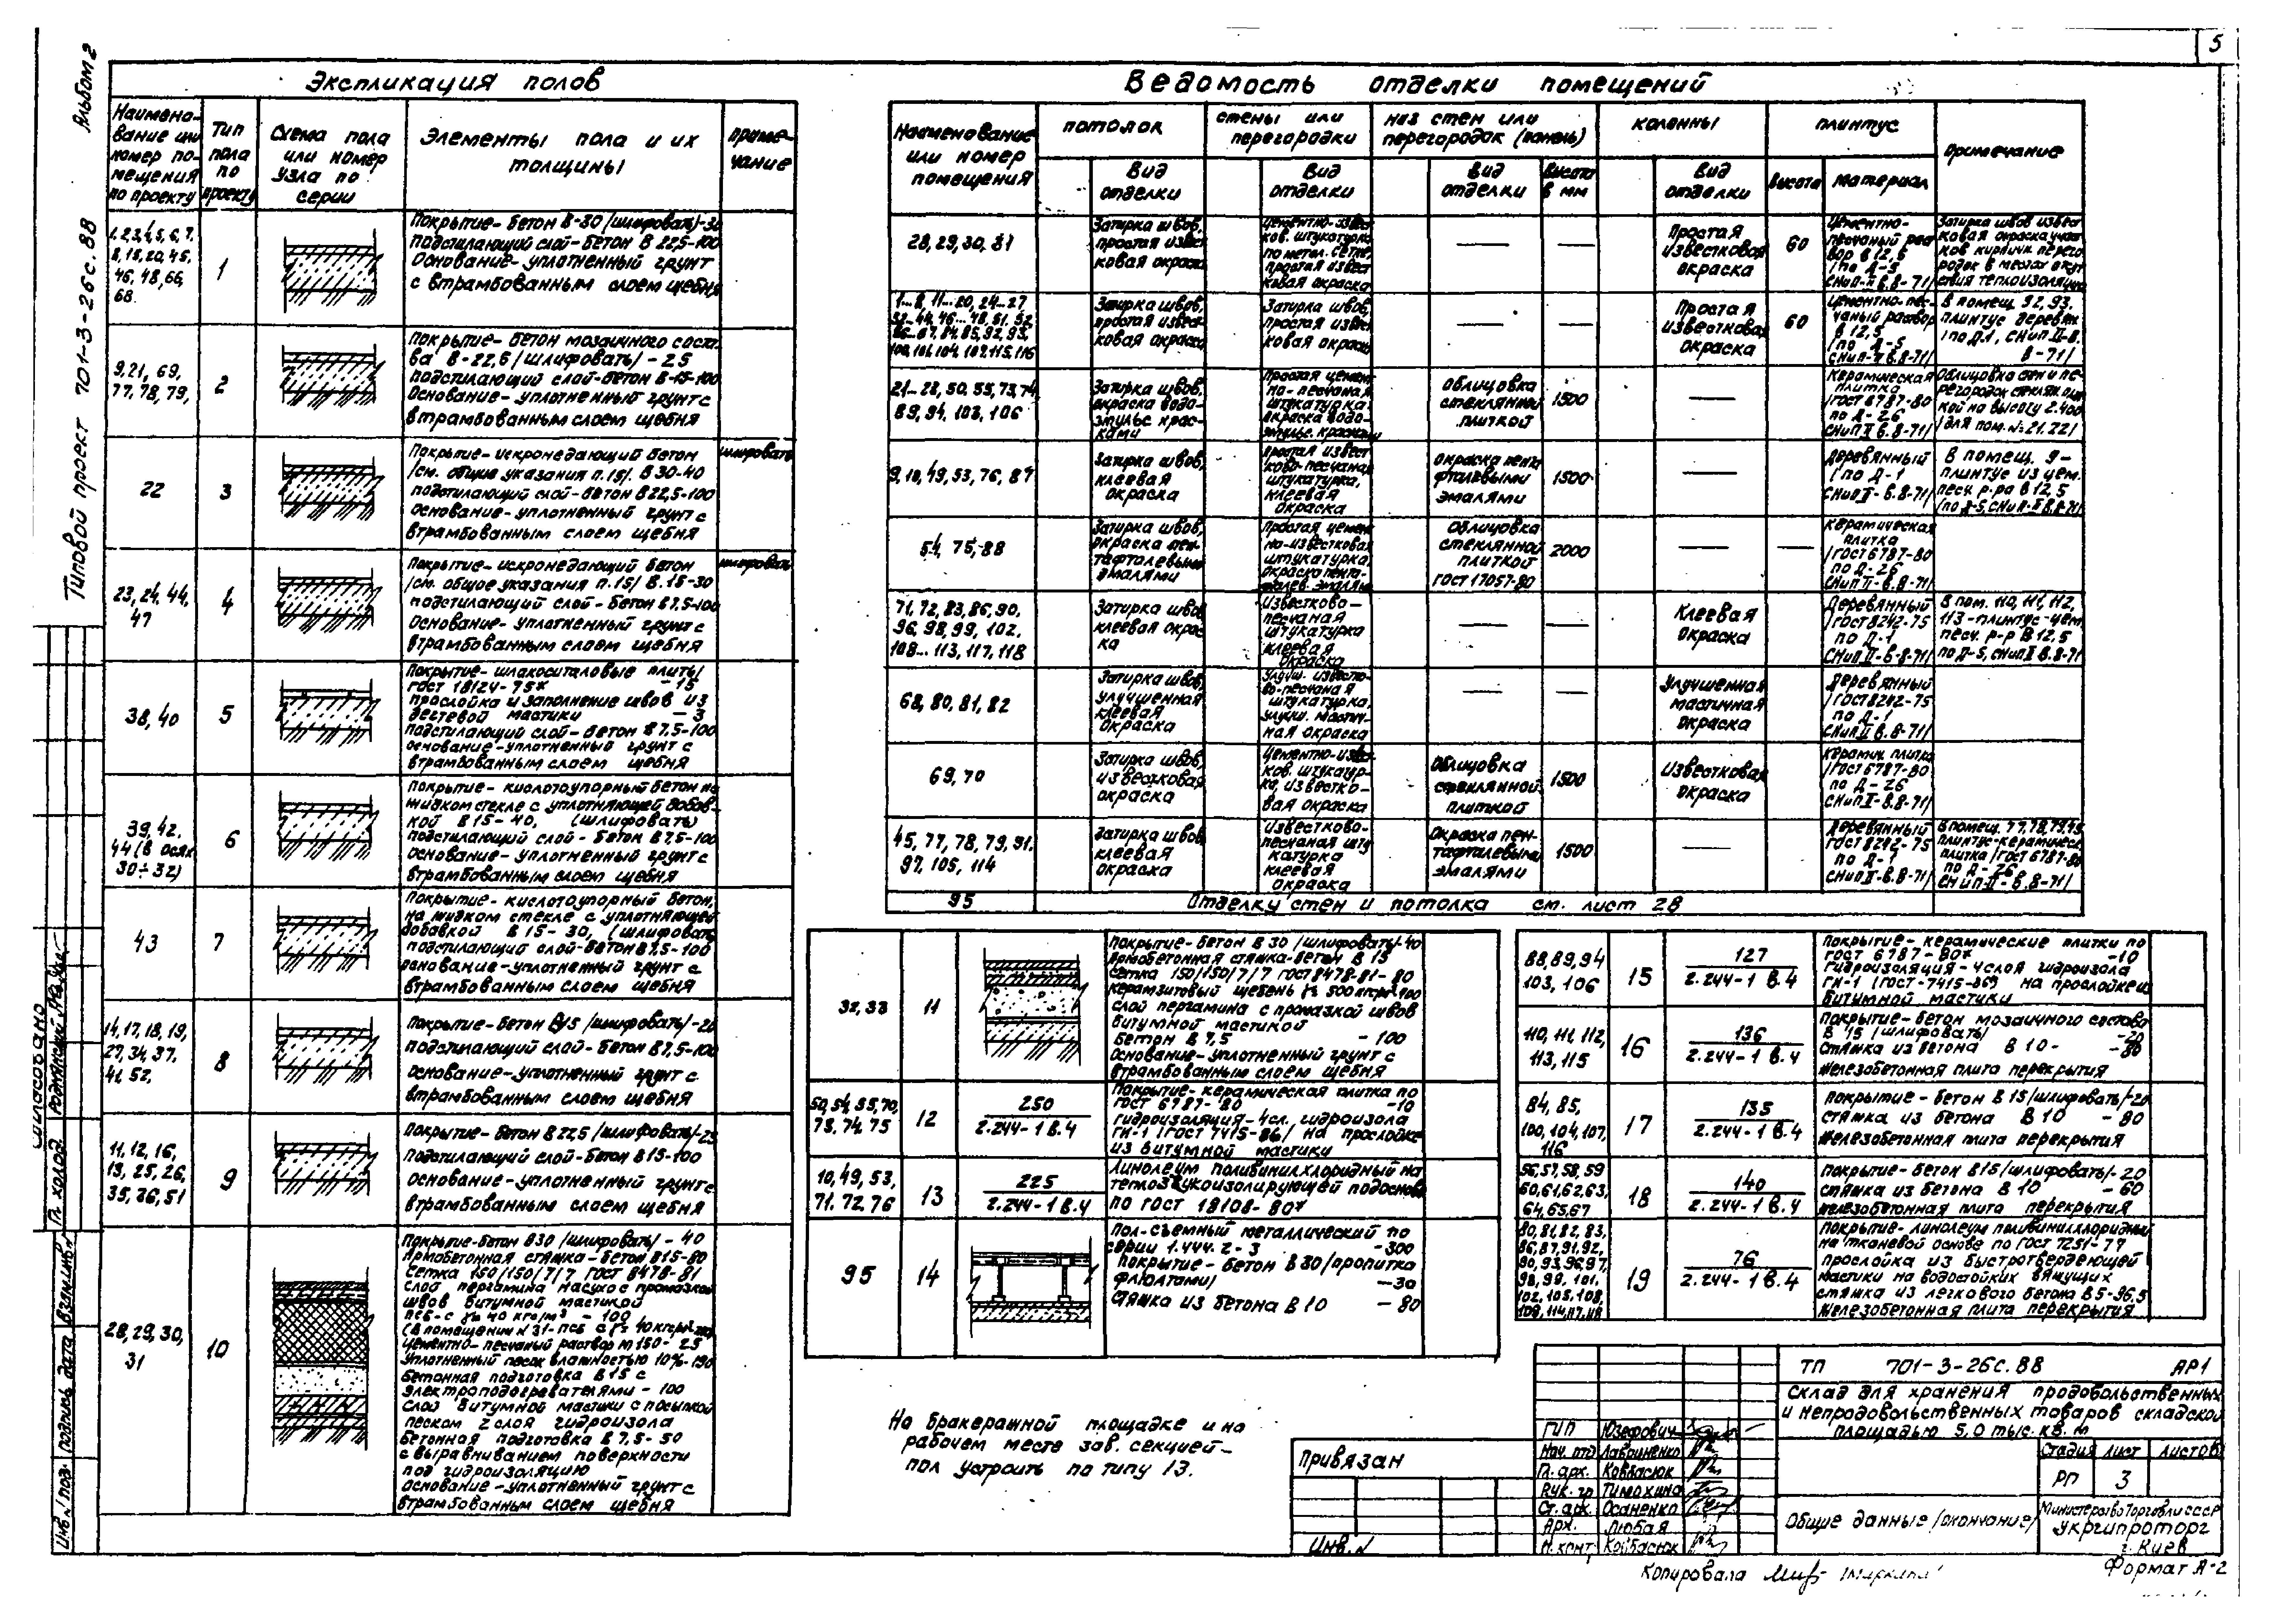 5
Альбом 2
Типовой проект 701-3-26с.88
Экспликация полов
Наимено-
вание или
номер по-
мещения
по проекту
Тип
пола
по
проекту
Схема пола
или номер
узла по
серии
Элементы пола и их
толщины
Приме-
чание
1,2,3,4,5,6,7,
8,15,20,45,
46,48,66,
68.
1
Покрытие-бетон В-30 /шлифовать/-30
подстилающий слой-бетон В 22,5-100
Основание-уплотненный грунт
с втрамбованным слоем щебня
9,21,69,
77,78,79,
2
Покрытие-бетон мозаичного соста-
ва В-22,6 /шлифовать/ - 25
подстилающий слой-бетон В-15-100
Основание-уплотненный грунт с
втрамбованным слоем щебня
22
3
Покрытие-искронедающий бетон
/см. общие указания п.15/. В 30-40
подстилающий слой-бетон В 22,5-100
основание-уплотненный грунт с
втрамбованным слоем щебня
шлифовать
23,24,44,
47
4
Покрытие-искронедающий бетон
/см. общие указания п.15/ В.15-30
подстилающий слой-бетон В 7,5-100
Основание-уплотненный грунт с
втрамбованным слоем щебня
шлифовать
38,40
5
Покрытие-шлакоситаловые плиты
гост 18124-75* -15
прослойка и заполнение швов из
дегтевой мастики - 3
подстилающий слой-бетон В 7,5-100
основание-уплотненный грунт с
втрамбованным слоем щебня
39,42,
44 (в осях
30÷32)
6
покрытие-кислотоупорный бетон на
жидком стекле с уплотняющей добав-
кой В 15-40, (шлифовать)
подстилающий слой-бетон В 7,5-100
основание-уплотненный грунт с
втрамбованным слоем щебня
43
7
Покрытие-кислотоупорный бетон,
на жидком стекле с уплотняющей
добавкой В 15-30, (шлифовать
подстилающий слой-бетон В 7,5-100
основание-уплотненный грунт с
втрамбованным слоем щебня
14,17,18,19,
27,34,37,
41,52,
8
Покрытие-бетон В15 /шлифовать/-20
подстилающий слой-бетон В 7,5-100
основание-уплотненный грунт с.
втрамбованным слоем щебня
11,12,16,
13,25,26,
35,36,51
9
Покрытие-бетон В 22,5 /шлифовать/-25
подстилающий слой-бетон В15-100
основание-уплотненный грунт с
втрамбованным слоем щебня
28,29,30,
31
10
Покрытие-бетон В30 /шлифовать/ - 40
Армобетонная стяжка-бетон В15-80
Сетка 150/150/7/7 ГОСТ 8478-81
слой пергамина насухо с промазкой
швов битумной мастикой
псб-с γ=40 кгс/м³ - 100
цементно-песчаный раствор М150-25
Уплотненный песок влажностью 10%-190
бетонная подготовка В15 с
электроподогревателями - 100
слой битумной мастики с посыпкой
песком 2 слоя гидроизола
бетонная подготовка В 7,5-50
с выравниванием поверхности
под гидроизоляцию
основание-уплотненный грунт с
втрамбованным слоем щебня
Ведомость отделки помещений
Наименование
или номер
помещения
потолок
Вид
отделки
стены или
перегородки
Вид
отделки
низ стен или
перегородок (панель)
Вид
отделки
высота
в мм
колонны
Вид
отделки
плинтус
высота
материал
примечание
28,29,30,31
Затирка швов,
простая извест
ковая окраска
цементно-извест
ков. штукатурка
по метал. сетке,
простая извест
ковая окраска
Простая
известковая
окраска
60
Цементно-
песчаный рас
вор В 12,5
/по Д-5
СНиП-II В.8-71/
Затирка швов извест
ковая окраска участ
ков кирпичн. перего
родок в местах отсут
ствия теплоизоляции
1...8, 11...20, 24...27
32...44,46...48,51,52,
56...67,84,85,92,93,
100,101,104,107,115,116
Затирка швов,
простая извест-
ковая окраска
Затирка швов,
простая извест
ковая окраска
Простая
известковая
окраска
60
Цементно-пес-
чаный раствор
В 12,5
/по Д-5
СНиП-II В.8-71/
В помещ 92,93,
плинтус деревян.
/по Д.1, СНиП II-В.
8-71/
21...22,50,55,73,74
89,94,103,106
Затирка швов,
окраска водо-
эмульс. крас-
ками
Простая цемент
но-песчаная
штукатурка.
окраска водо-
эмульс. красками
облицовка
стеклянной
плиткой
1500
керамическая
плитка
/ГОСТ 6787-80
по Д-26
СНиП II В.8-71/
Облицовка стен и пе-
регородок стеклян. плит
кой на высоту 2.400
/для пом. №21.22/
9,10,49,53,76,87
Затирка швов,
клеевая
окраска
простая извест
ково-песчаная
штукатурка,
клеевая
окраска
окраска пента
фталевыми
эмалями
1500
Деревянный
/по Д-1
СНиП II-В.8-71/
В помещ. 9-
плинтус из цем.
песч. р-ра В 12,5
/по Д-5, СНиП-II В.8-71/
54,75,-88
Затирка швов,
окраска пен-
тафталевыми
эмалями
Простая цемент
но-известковая
штукатурка,
окраска пента-
фталев. эмалями
облицовка
стеклянной
плиткой
ГОСТ 17057-80
2000
керамическая
плитка
/ГОСТ 6787-80
по Д-26
СНиП II-В.8-71/
71,72,83,86,90,
96,98,99,102,
108...113,117,118
Затирка швов
клеевая окрас
ка
Известково-
песчаная
штукатурка
клеевая
окраска
Клеевая
окраска
Деревянный
/ГОСТ 8242-75
по Д-1
СНиП II-В-8-71/
В пом. 110,111,112,
113-плинтус-цем.
песч. р-р В 12.5
по Д-5, СНиП II В.8-71
68,80,81,82
Затирка швов,
улучшенная
клеевая
окраска
Улучш. известко-
во-песчаная
штукатурка,
улучш. мастич-
ная окраска
Улучшенная
мастичная
окраска
Деревянный
/ГОСТ 8242-75
по Д-1
СНиП II В.8-71/
69,70
Затирка швов,
известковая
окраска
Цементно-извес-
ков. штукатур-
ка, известко-
вая окраска
Облицовка
стеклянной
плиткой
1500
Известковая
окраска
керамич. плитка
/ГОСТ 6787-80
по Д-26
СНиП II-В.8-71/
45,77,78,79,91,
97,105,114
Затирка швов
клеевая
окраска
Известково-
песчаная шту
катурка
клеевая
окраска
Окраска пен-
тафталевыми
эмалями
1500
Деревянный
ГОСТ 8242-75
по Д-1
СНиП II-В.8-71/
В помещ. 77,78,79,45
плинтус-керамическ.
плитка /ГОСТ 6787-80
по Д-26
СНиП-II-В.8-71/
95
Отделку стен и потолка см. лист 28
32,33
11
Покрытие-бетон В 30 /шлифовать/-40
армобетонная стяжка-бетон В 15
сетка 150/150/7/7 ГОСТ 8478-81-80
керамзитовый щебень γ=500 кгс/м³-100
слой пергамина с промазкой швов
битумной мастикой
бетон В 7,5 - 100
Основание-уплотненный грунт с
втрамбованным слоем щебня
50,54,55,70,
73,74,75
12
250
2.244-1 В.4
Покрытие-керамическая плитка по
ГОСТ 6787-80 -10
гидроизоляция-4сл. гидроизола
ГИ-1 /ГОСТ 7415-86/ на прослойке
из битумной мастики
10,49,53,
71,72,76
13
225
2.244-1 В.4
Линолеум поливинилхлоридный на
теплозвукоизолирующей подоснове
по ГОСТ 18108-80*
95
14
Пол-съемный металлический по
серии 1.444.2-3 -300
Покрытие-бетон В 30/пропитка
флюатами/ -30
стяжка из бетона В 10 - 80
88,89,94
103,106
15
127
2.244-1 В.4
Покрытие-керамические плитки по
ГОСТ 6787-80* -10
Гидроизоляция-4слоя гидроизола
ГИ-1 (ГОСТ-7415-86) на прослойке из
битумной мастики
110,111,112,
113,115
16
136
2.244-1 В.4
Покрытие-бетон мозаичного состава
В 15 /шлифовать/ -20
Стяжка из бетона В 10- -80
Железобетонная плита перекрытия
84,85,
100,104,107,
116
17
135
2.244-1 В.4
Покрытие-бетон В 15/шлифовать/-20
стяжка из бетона В 10 -80
железобетонная плита перекрытия
56,57,58,59
60,61,62,63,
64,65,67
18
140
2.244-1 В.4
Покрытие-бетон В15/шлифовать/-20
стяжка из бетона В 10 -60
железобетонная плита перекрытия
80,81,82,83,
86,87,91,92,
90,93,96,97,
98,99,101,
102,105,108,
109,114,117,118
19
76
2.244-1 В.4
Покрытие-линолеум поливинилхлоридный
на тканевой основе по ГОСТ 7251-77
прослойка из быстротвердеющей
мастики на водостойких вяжущих
стяжка из легкого бетона В 5-96,5
железобетонная плита перекрытия
На бракеражной площадке и на
рабочем месте зав. секцией-
пол устроить по типу 13.
Привязан
Инв.№
ГИП Юзефович
Нач. отд Лавриненко
Гл. арх. Ковбасюк
Рук. гр Тимохина
Ст. арх. Осаненко
Арх. Любая
Н. конт. Ковбасюк
ТП 701-3-26с.88 АР1
Склад для хранения продовольственных
и непродовольственных товаров складской
площадью 5,0 тыс. кв. м
Стадия Лист Листов
РП 3
Общие данные /окончание/
Министерство Торговли СССР
Укргипроторг
г. Киев
Копировала
Формат А-2
Согласовано
Гл. холод. Роднянский
Взам.инв.№
Подпись дата
Инв.№ под.